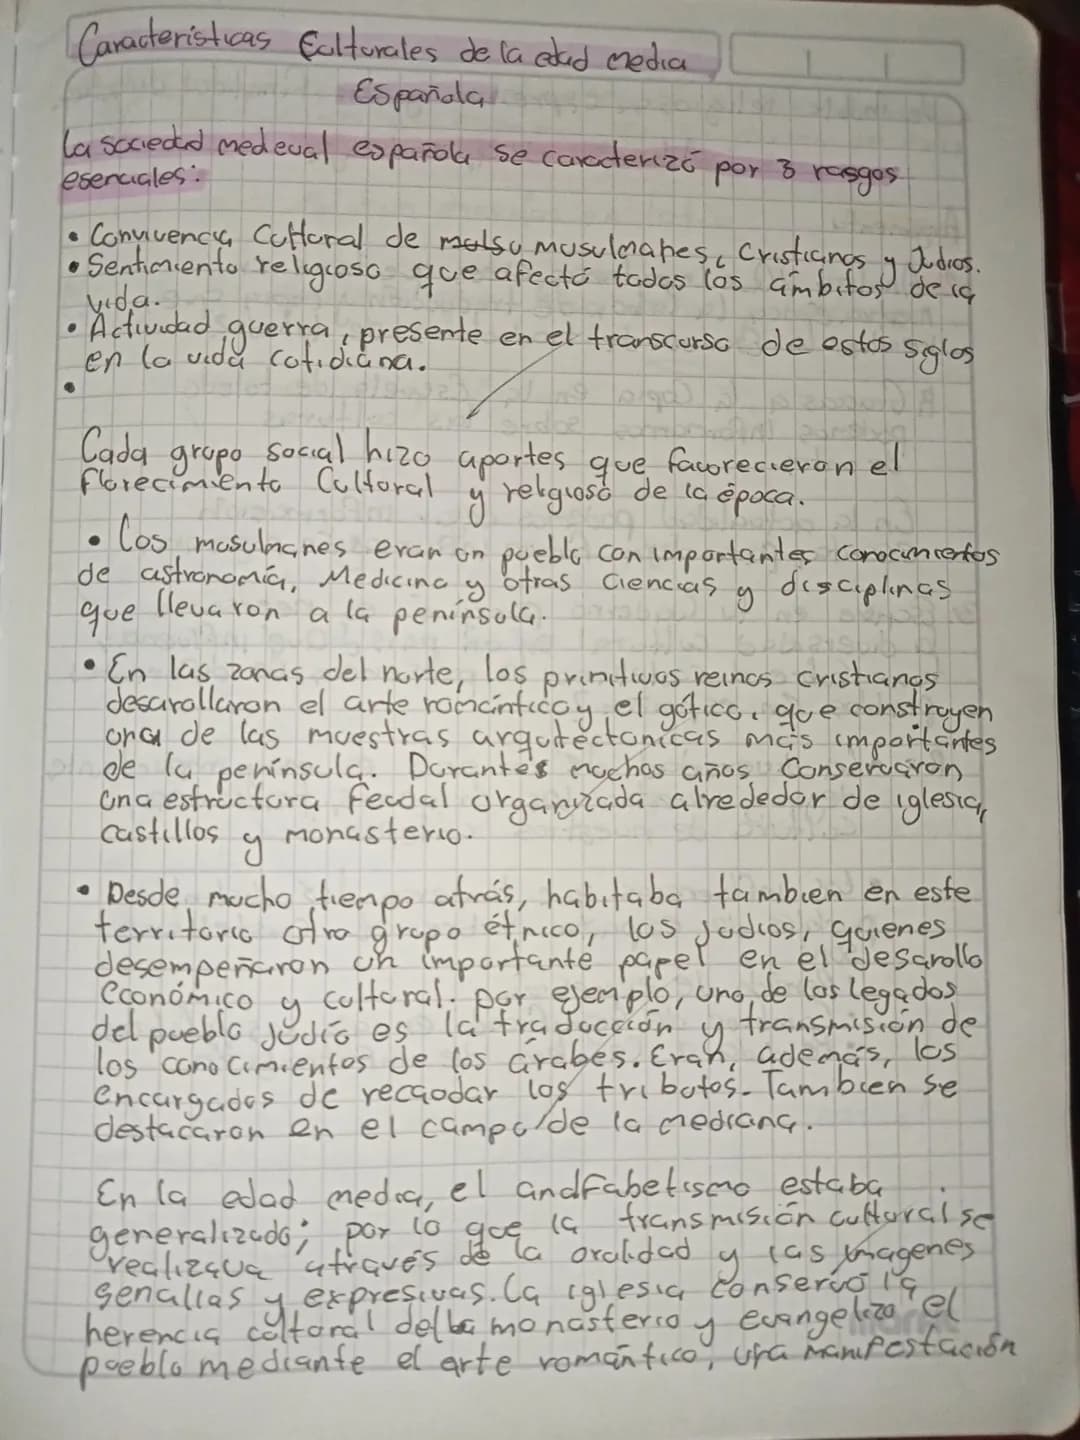 Caracteristicas Culturales de la edad media
Española
La sociedad medeval española se caracterizó por 3 rasgos
esenciales:
• Convivencia Cultural de musulmanes, Cristianos y Judios.
• Sentimiento religioso que afectó todos los ámbitos de la
vida.
• Actividad guerra, presente en el transcurso de estos siglos
en la vida cotidiana.
•
Cada grupo social hizo aportes que favorecieron el
florecimiento Cultural y religioso de la época.
• Los musulmanes eran un pueblo con importantes conocimientos
de astronomía, Medicina y otras Ciencias y disciplinas
que llevaron a la península.
• En las zonas del norte, los primitivos reinos cristianos
desarollaron el arte románticoy el gótico, que construyen
una de las muestras arquitectonicas más importantes
de la península. Durantes muchos años Conservaron
una estructura feudal organizada alrededor de iglesia,
castillos y monasterio.
• Desde mucho tiempo atrás, habitaba tambien en este
territorio otro grupo étnico, los judios, quienes
desempeñaron un importante papel en el desarollo
económico y cultural. por ejemplo, uno de los legados
del pueblo judío es la traducción y transmisión de
los conocimientos de los árabes. Eran, además, los
encargados de recaodar los tributos. Tambien se
destacaron en el campo de la mediana.
En la edad media, el andfabetismo estaba
generalizado; por lo que la transmisión cultural se
realizava através de la oralidad y las imagenes
senallas y expresivas. La iglesia conservó la
herencia cultoral monasterio y evangelizo el
pueblo mediante el arte romántico, una manifestación